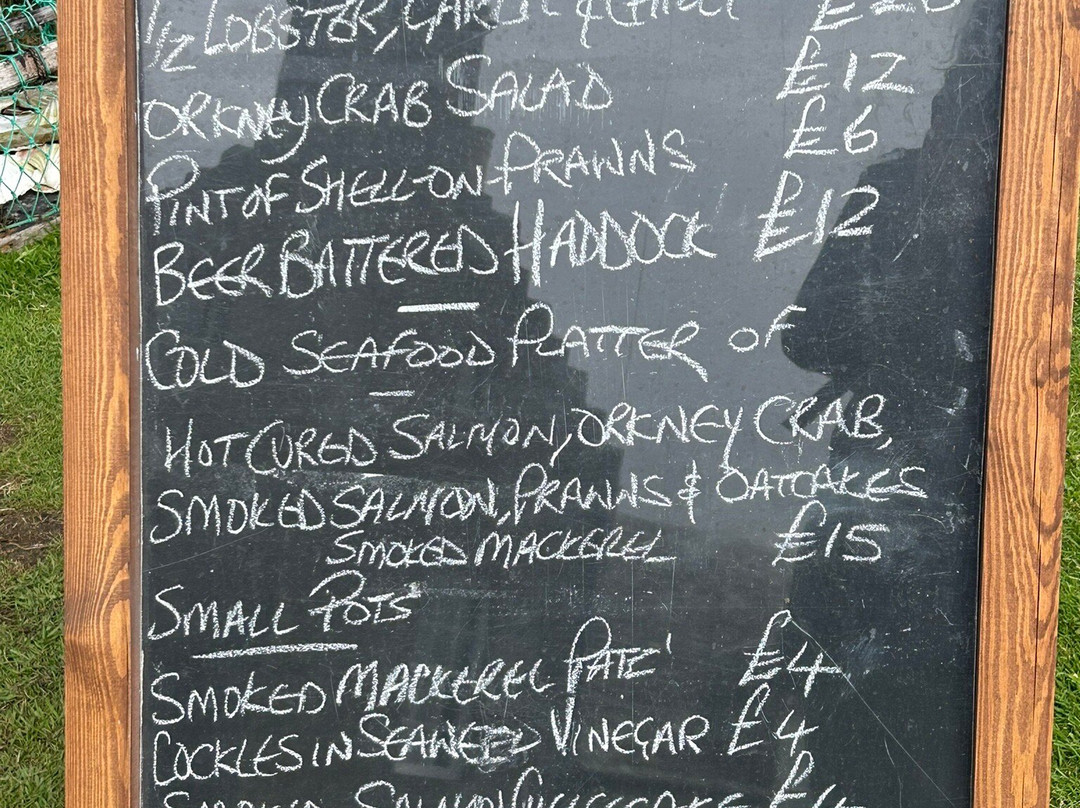 1/2 LOBSTER, GARLIC & CHILLI £20
ORKNEY CRAB SALAD £12
PINT OF SHELL-ON PRAWNS £6
BEER BATTERED HADDOCK £12
COLD SEAFOOD PLATTER OF
HOT CURED SALMON, ORKNEY CRAB,
SMOKED SALMON, PRAWNS & OATCAKES
SMOKED MACKEREL £15
SMALL POTS
SMOKED MACKEREL PATE' £4
COCKLES IN SEAWEED VINEGAR £4
SMOKED SALMON CHEESECAKE